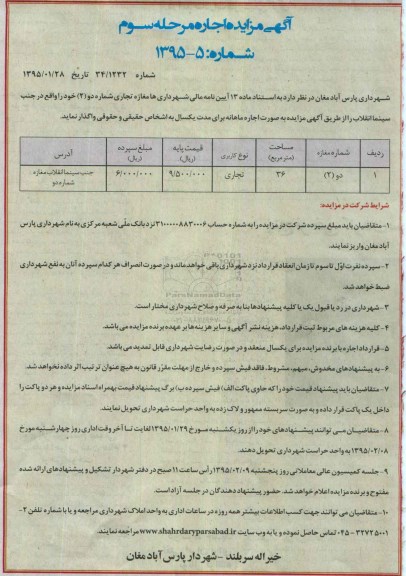 آگهی مزایده اجاره مرحله سوم
شماره: ۵-۱۳۹۵
شماره ۳۴/۱۲۳۲ تاریخ ۱۳۹۵/۰۱/۲۸
شهرداری پارس آباد مغان در نظر دارد به استناد ماده ۱۳ آیین نامه مالی شهرداری ها مغازه تجاری شماره دو (۲) خود را واقع در جنب
سینما انقلاب را از طریق آگهی مزایده به صورت اجاره ماهانه برای مدت یکسال به اشخاص حقیقی و حقوقی واگذار نماید.
ردیف شماره مغازه مساحت (متر مربع) نوع کاربری قیمت پایه (ریال) مبلغ سپرده (ریال) آدرس
۱ دو (۲) ۳۶ تجاری ۹/۵۰۰/۰۰۰ ۶/۰۰۰/۰۰۰ جنب سینما انقلاب مغازه شماره دو
شرایط شرکت در مزایده:
۱- متقاضیان باید مبلغ سپرده شرکت در مزایده را به شماره حساب ۳۱۰۰۰۰۰۸۸۳۰۰۶ نزد بانک ملی شعبه مرکزی به نام شهرداری پارس
آباد مغان واریز نمایند.
۲- سپرده نفرت اول تا سوم تا زمان انعقاد قرارداد نزد شهرداری باقی خواهد ماند و در صورت انصراف هر کدام سپرده آنان به نفع شهرداری
ضبط خواهد شد.
۳- شهرداری در رد یا قبول یک یا کلیه پیشنهادها بنا به صرفه و صلاح شهرداری مختار است.
۴- کلیه هزینه های مربوط ثبت قرارداد، هزینه نشر آگهی و سایر هزینه ها بر عهده برنده مزایده می باشد.
۵- قرارداد اجاره با برنده مزایده برای یکسال منعقد و در صورت رضایت شهرداری قابل تمدید می باشد.
۶- به پیشنهادهای مخدوش، مبهم، مشروط، فاقد فیش سپرده و خارج از مهلت مقرر قانون به هیچ عنوان ترتیب اثر داده نخواهد شد.
۷- متقاضیان باید پیشنهاد قیمت خود را که حاوی پاکت الف) فیش سپرده ب) برگ پیشنهاد قیمت بهمراه اسناد مزایده و هر دو پاکت را
داخل یک پاکت قرار داده و به صورت سربسته ممهور و لاک زده به واحد حراست شهرداری تحویل نمایند.
۸- متقاضیان می توانند پیشنهادهای خود را از روز یکشنبه مورخ ۱۳۹۵/۰۱/۲۹ لغایت تا آخر وقت اداری روز چهارشنبه مورخ
۱۳۹۵/۰۲/۰۸ به واحد حراست شهرداری تحویل دهند.
۹- جلسه کمیسیون عالی معاملاتی روز پنجشنبه ۱۳۹۵/۰۲/۰۹ رأس ساعت ۱۱ صبح در دفتر شهردار تشکیل و پیشنهادهای ارائه شده
مفتوح و برنده مزایده اعلام خواهد شد. حضور پیشنهاد دهندگان در جلسه آزاد است.
۱۰- متقاضیان می توانند جهت کسب اطلاعات بیشتر همه روزه در ساعات اداری به واحد املاک شهرداری مراجعه و یا با شماره تلفن ۲-
۳۲۷۲۵۰۰۱-۰۴۵ تماس حاصل نموده و یا به وب سایت www.shahrdaryparsabad.ir مراجعه نمایند.
خیراله سربلند - شهردار پارس آباد مغان
ParsNamadData